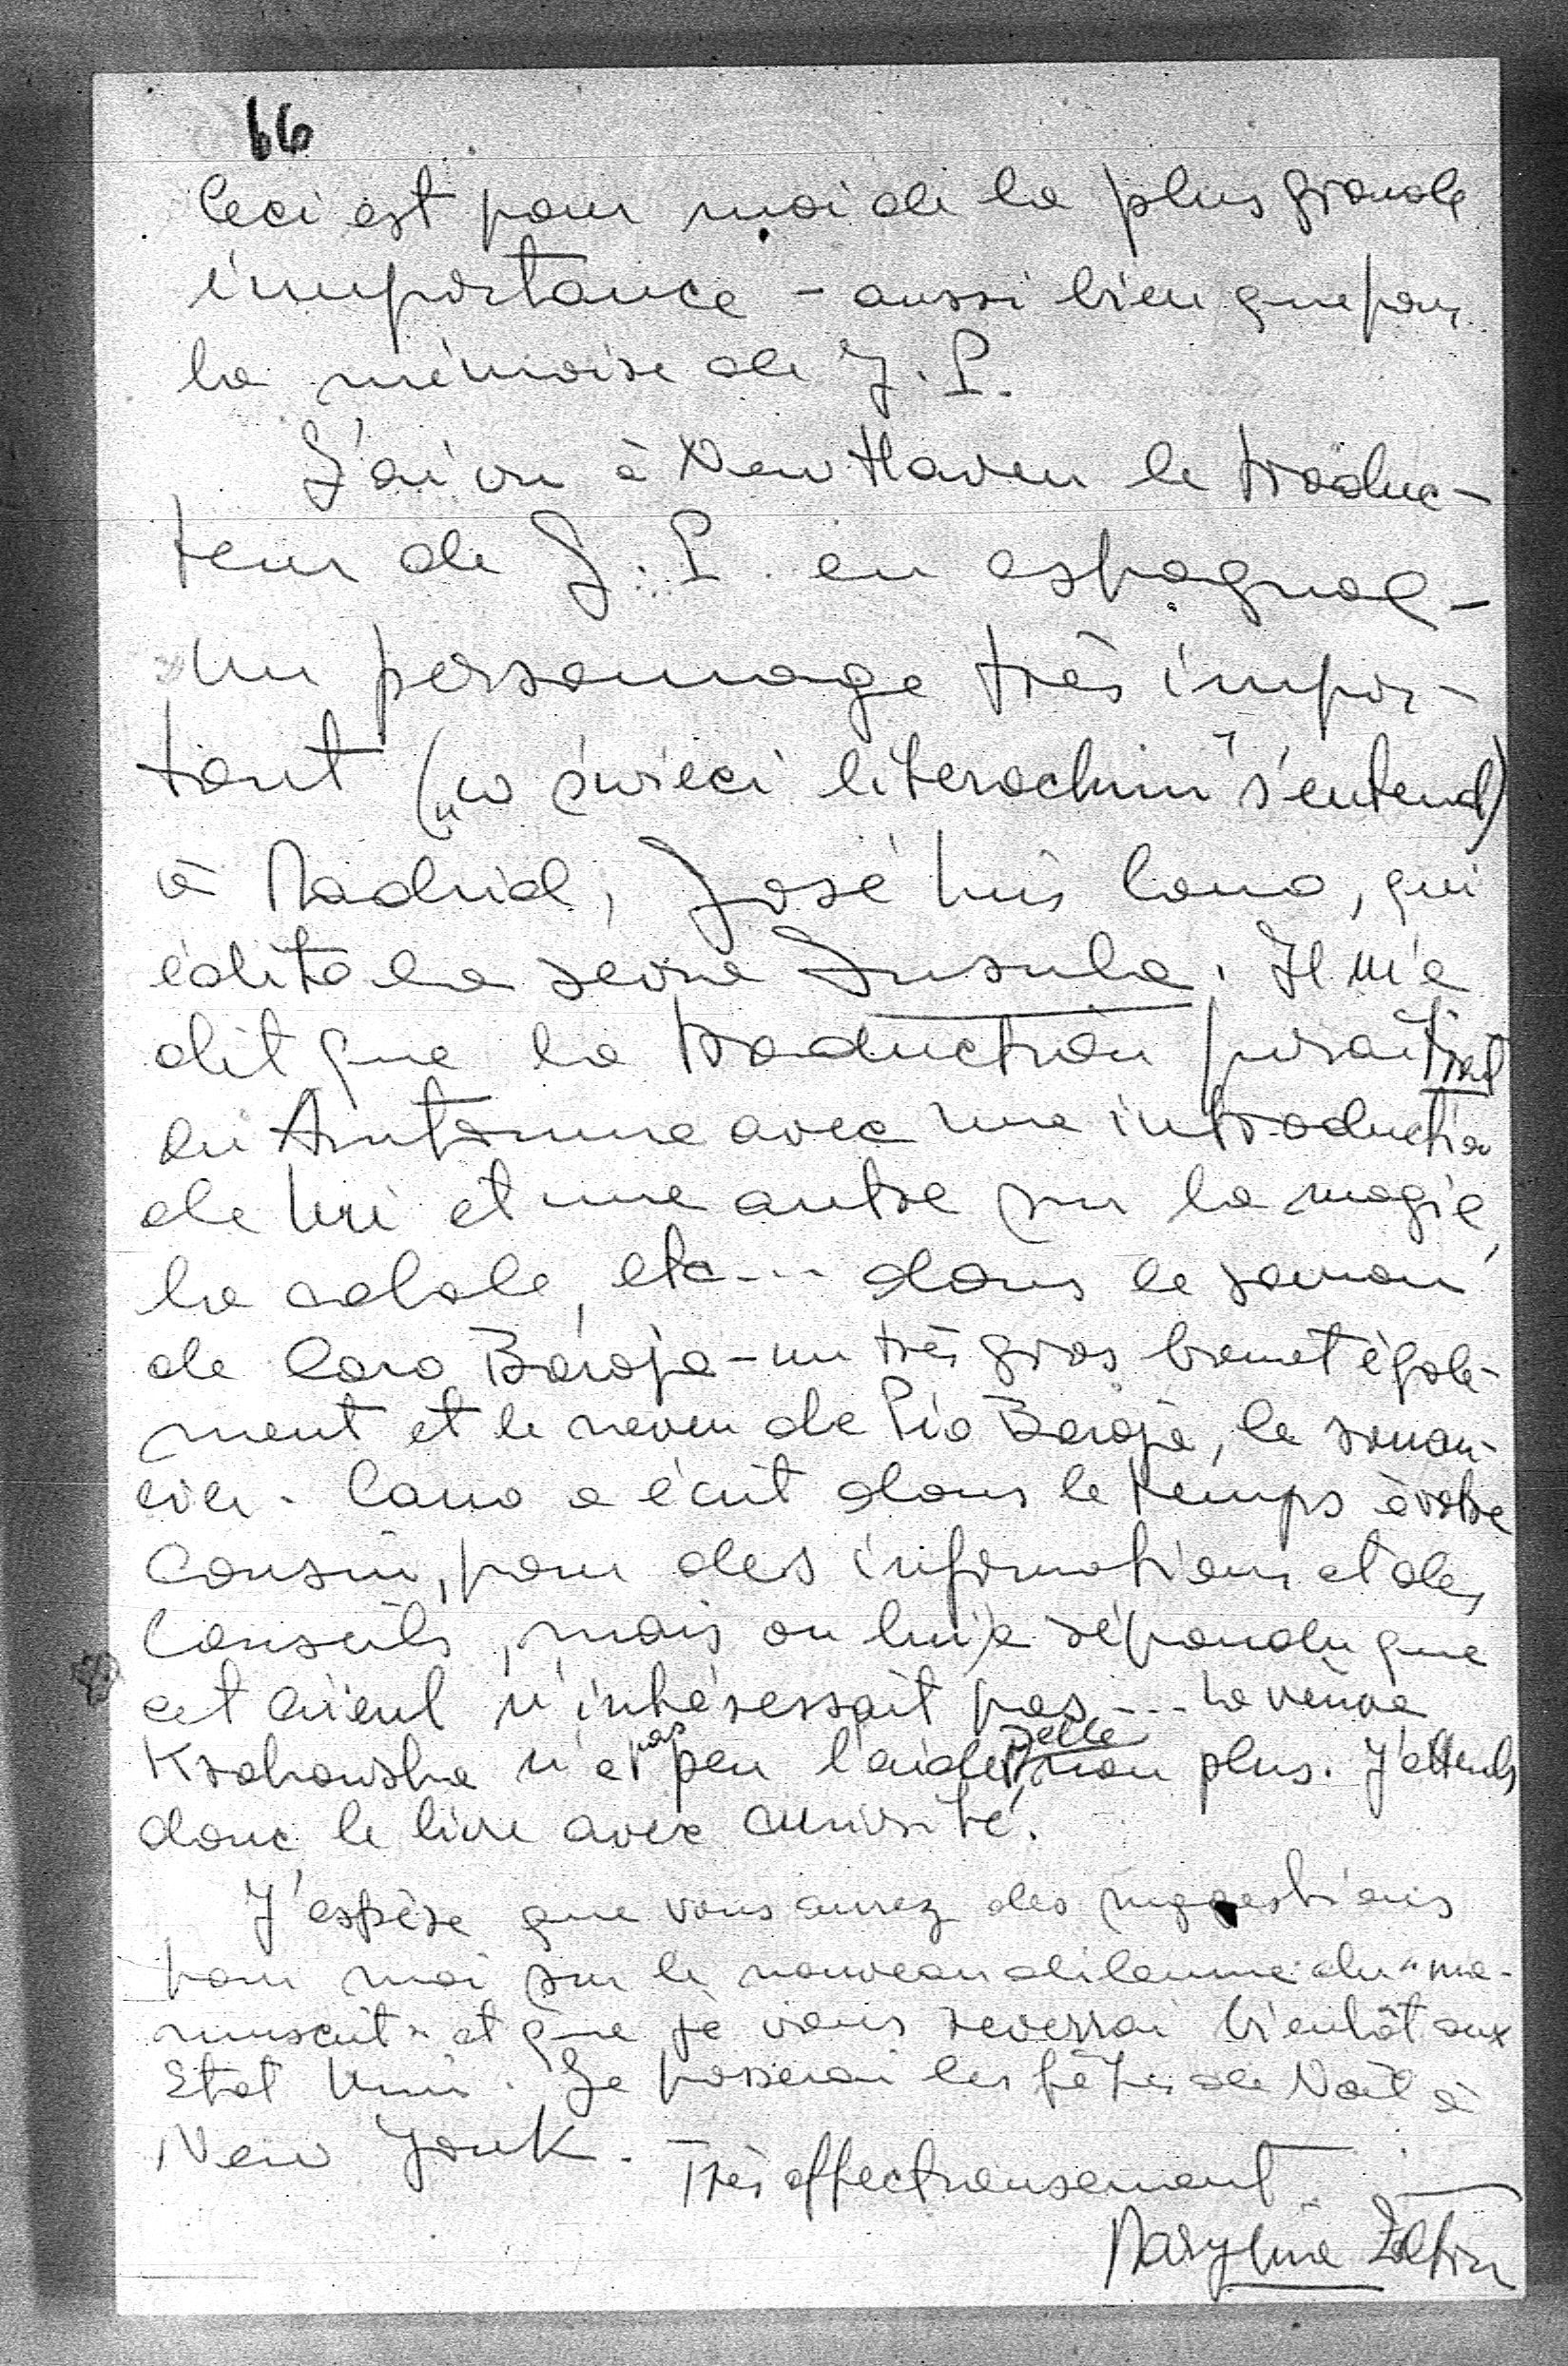 66
Ceci est pour moi de la plus grande
importance – aussi bien que pour
la mémoire de J. P.
J'ai vu à New Haven le traduc-
teur de J. P. en espagnol –
un personnage très impor-
tant („w świecie literackim" s'entend)
à Madrid, José Luis Cano, qui
édite la revue Insula. Il m'a
dit que la traduction paraîtrait
en Automne avec une introduction
de lui et une autre sur la magie,
la cabale, etc... dans le roman
de Caro Baroja – un très gros bonnet égale-
ment et le neveu de Pio Baroja, le roman-
cier. Cano a écrit dans le temps à votre
Cousin, pour des informations et des
Conseils, mais on lui a répondu que
cet aïeul n'intéressait pas... La veuve
Krakowska n'a pas peu l'aider, elle non plus. J'attends
donc le livre avec curiosité.
J'espère que vous aurez des suggestions
pour moi sur le nouveau dilemme du "ma-
nuscrit" et que je vous reverrai bientôt aux
Etat Unis. Je passerai les fêtes de Noël à
New York. Très affectueusement
Maryline Żółtin